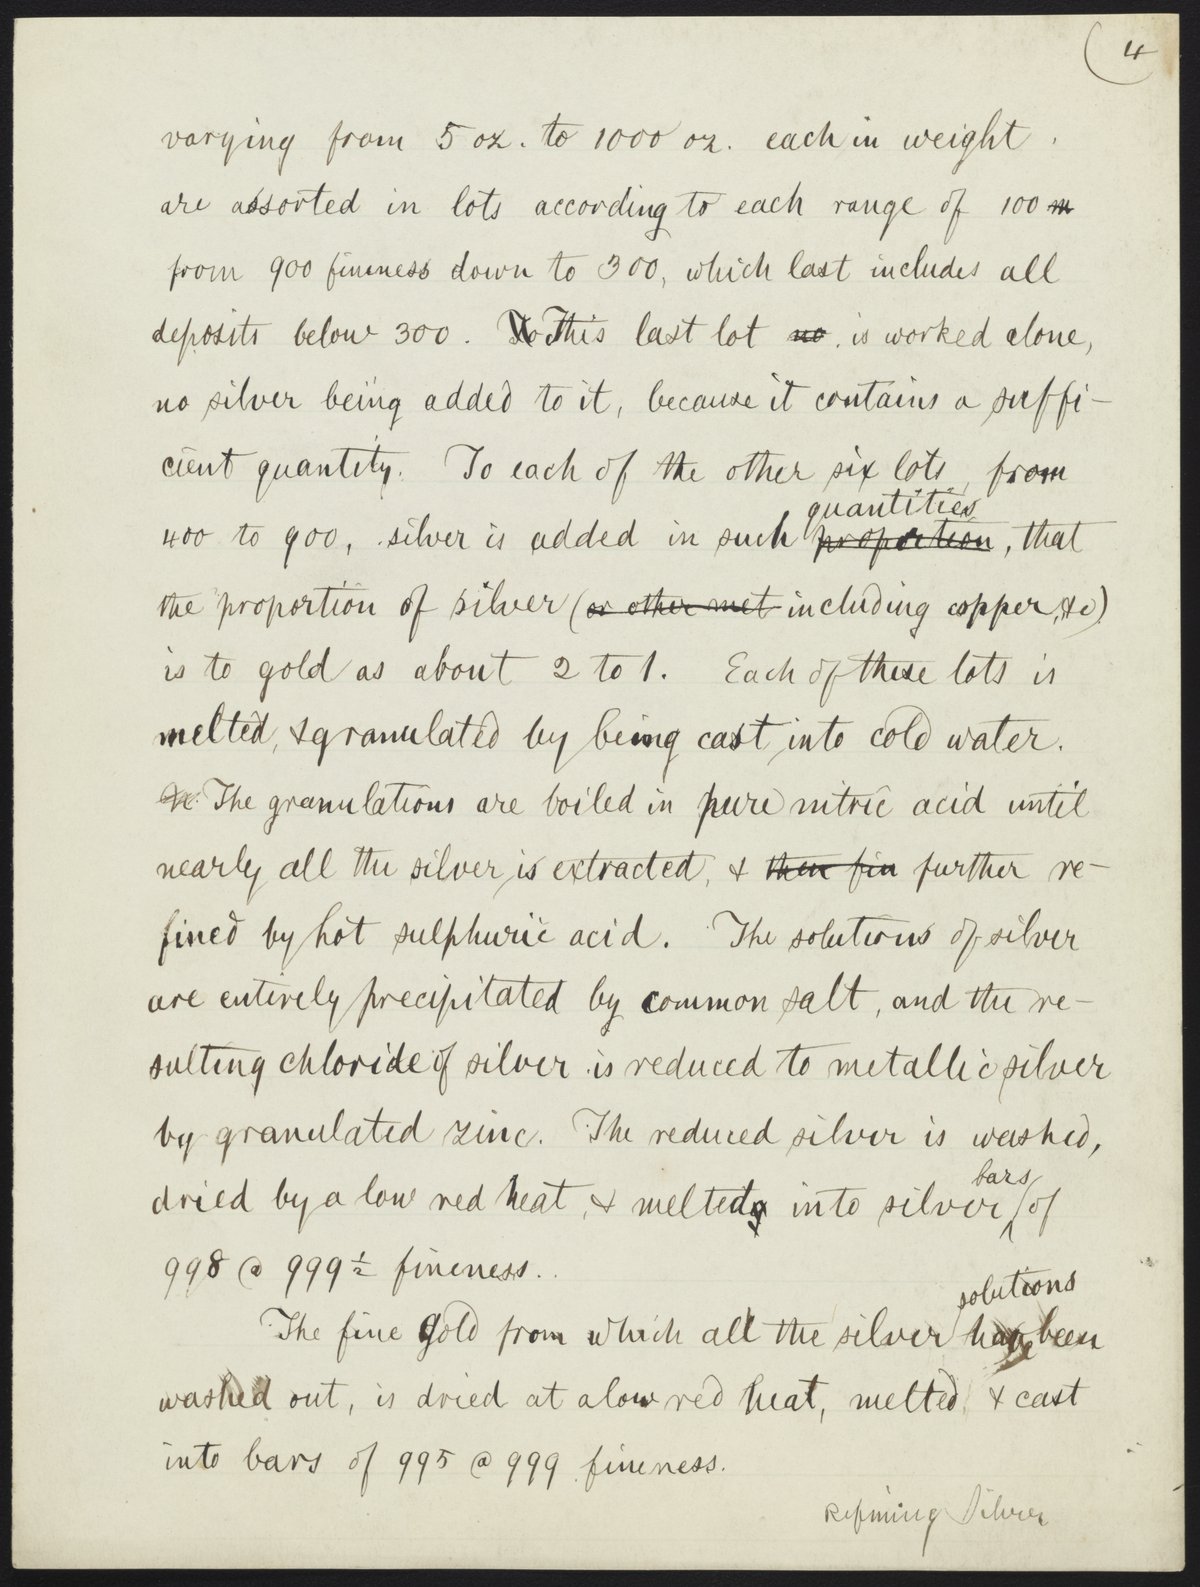 (4
varying from 5 oz. to 1000 oz. each in weight.
are assorted in lots according to each range of 100 m
from 900 fineness down to 300, which last includes all
deposits below 300. To This last lot no. is worked alone,
no silver being added to it, because it contains a suffi-
cient quantity. To each of the other six lots, from
quantities
400 to 900, silver is added in such proportion, that
the proportion of silver (or other met including copper, &c)
is to gold as about 2 to 1. Each of these lots is
melted, & granulated by being cast into cold water.
The granulations are boiled in pure nitric acid until
nearly all the silver is extracted, & then fin further re-
fined by hot sulphuric acid. The solutions of silver
are entirely precipitated by common salt, and the re-
sulting chloride of silver is reduced to metallic silver
by granulated zinc. The reduced silver is washed,
bars
dried by a low red heat, & melted into silver of
998 @ 999½ fineness.
solutions
The fine gold from which all the silver have been
washed out, is dried at a low red heat, melted & cast
into bars of 995 @ 999 fineness.
Refining Silver